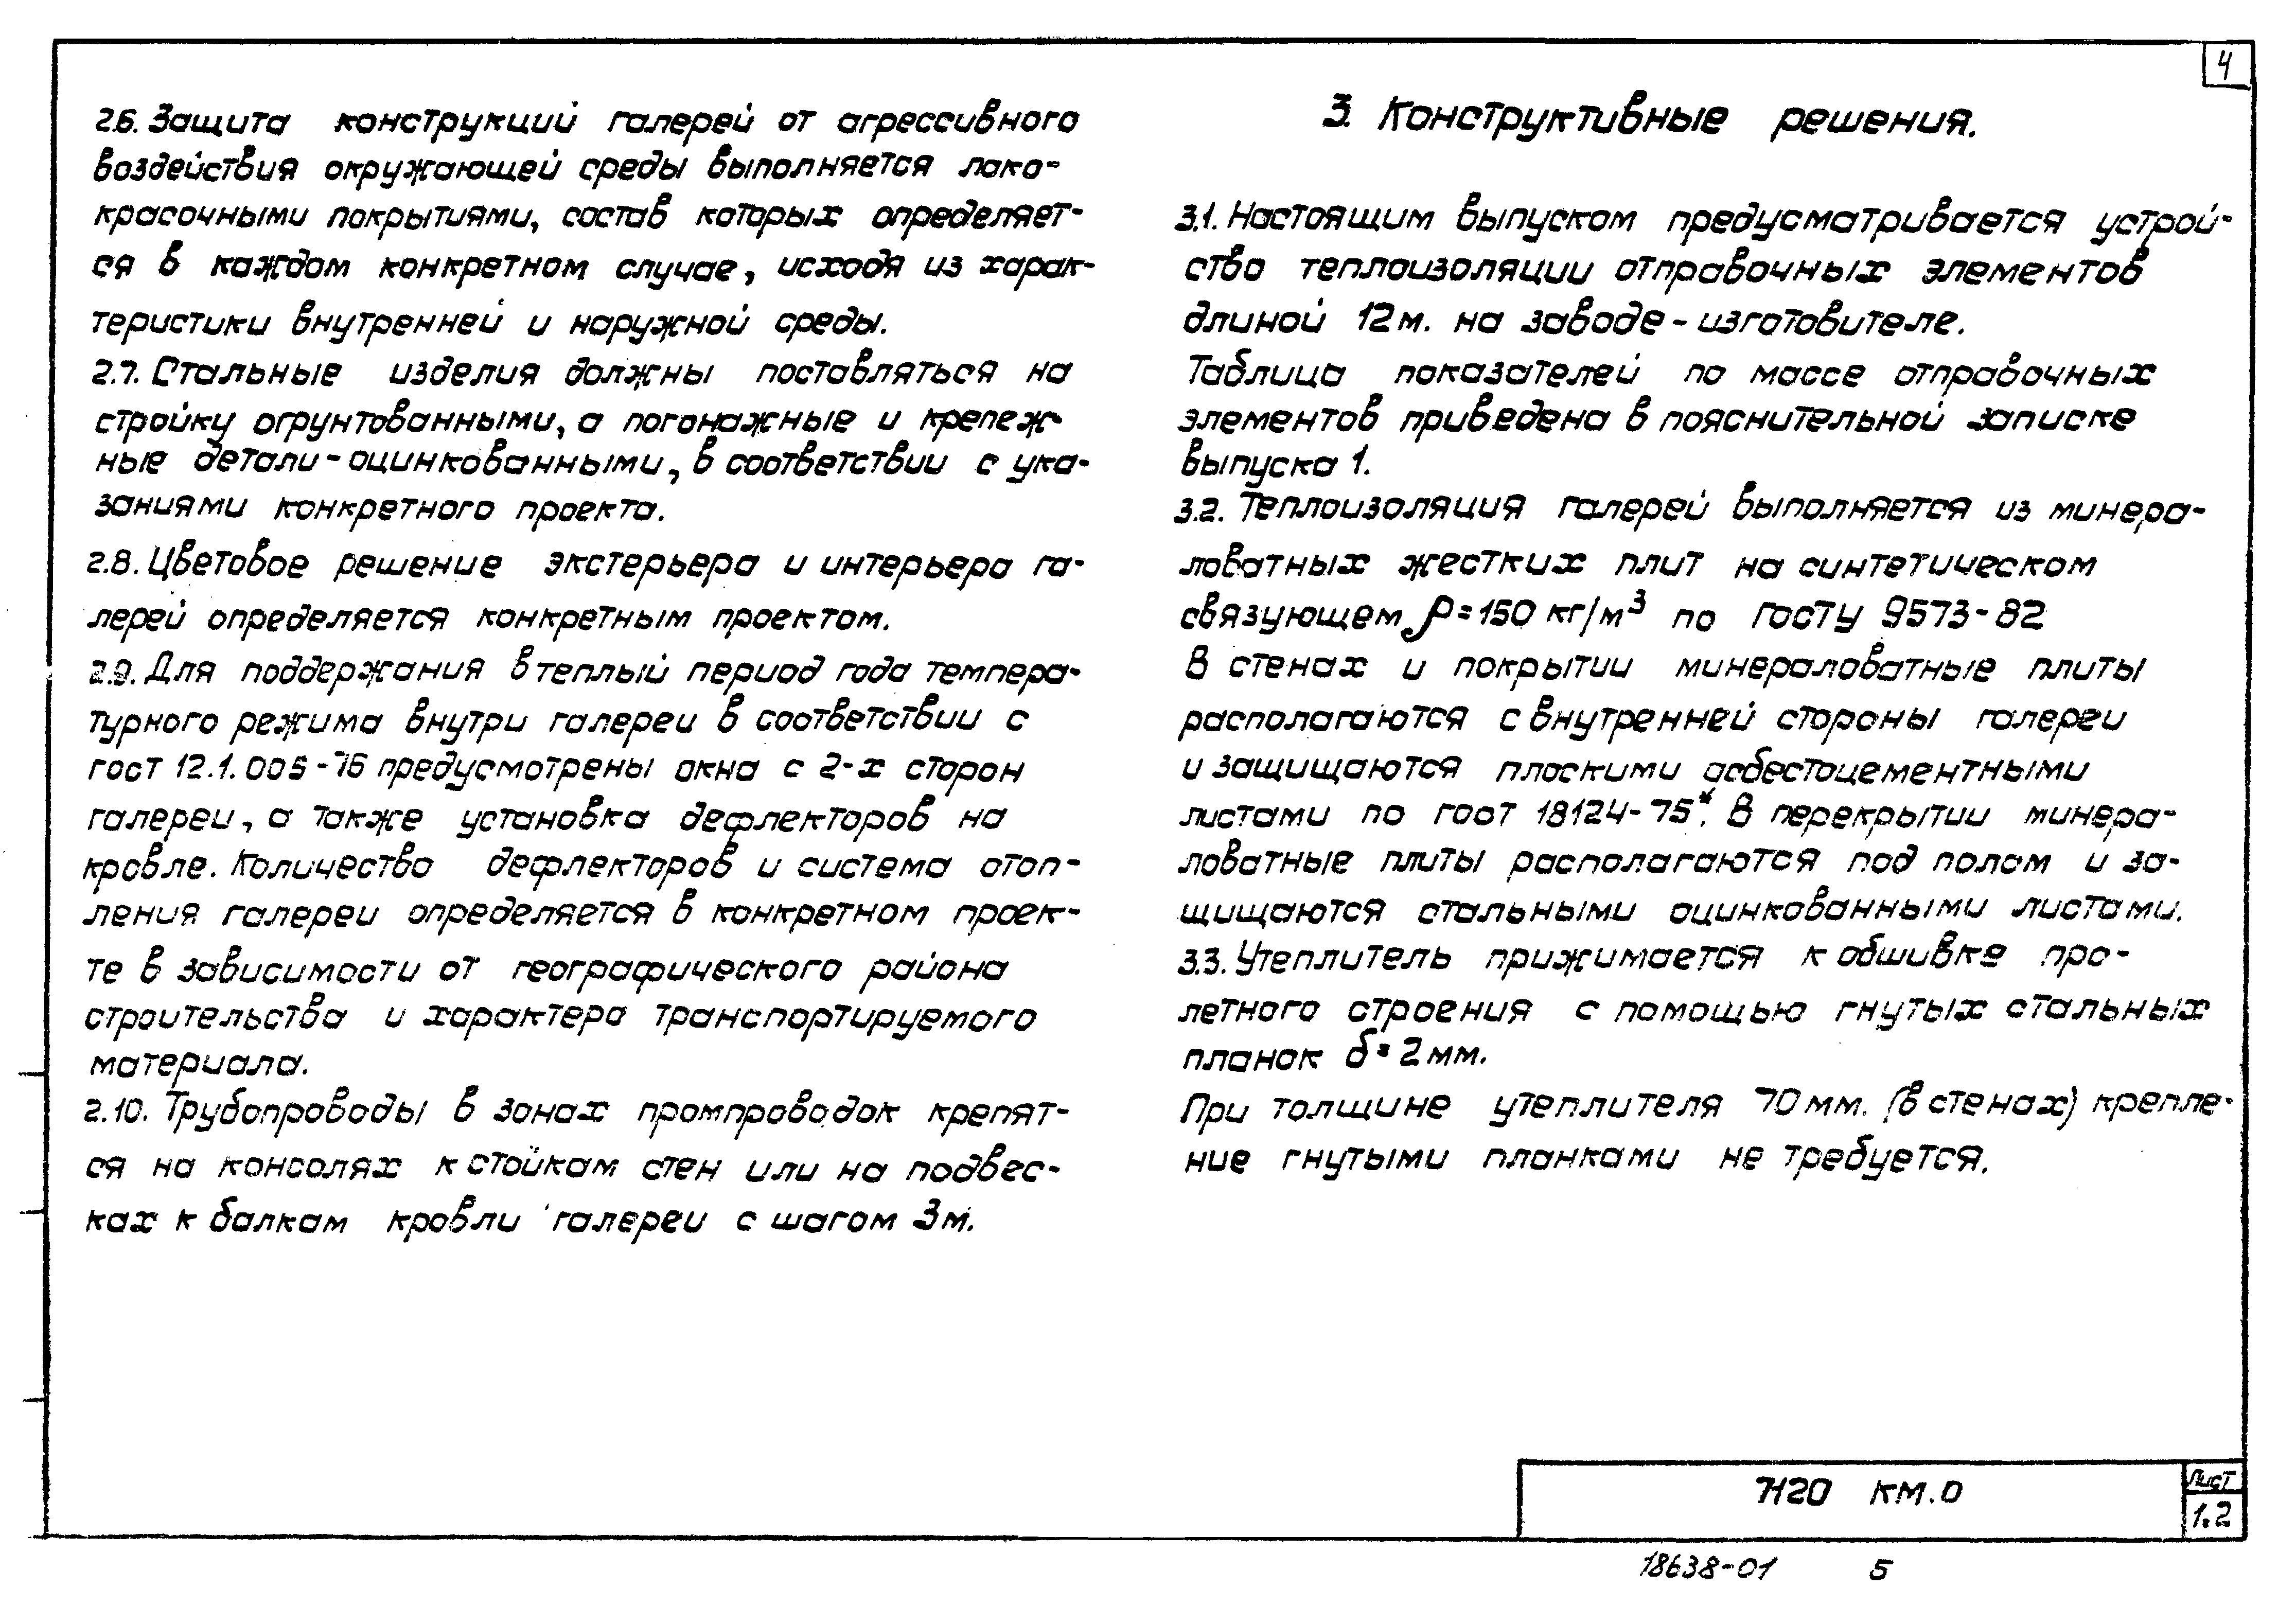 4
2.6. Защита конструкций галерей от агрессивного
воздействия окружающей среды выполняется лако-
красочными покрытиями, состав которых определяет-
ся в каждом конкретном случае, исходя из харак-
теристики внутренней и наружной среды.
2.7. Стальные изделия должны поставляться на
стройку огрунтованными, а погонажные и крепеж-
ные детали - оцинкованными, в соответствии с ука-
заниями конкретного проекта.
2.8. Цветовое решение экстерьера и интерьера га-
лерей определяется конкретным проектом.
2.9. Для поддержания в теплый период года темпера-
турного режима внутри галереи в соответствии с
гост 12.1.005-76 предусмотрены окна с 2-х сторон
галереи, а также установка дефлекторов на
кровле. Количество дефлекторов и система отоп-
ления галереи определяется в конкретном проек-
те в зависимости от географического района
строительства и характера транспортируемого
материала.
2.10. Трубопроводы в зонах промпроводок крепят-
ся на консолях к стойкам стен или на подвес-
ках к балкам кровли галереи с шагом 3м.
3. Конструктивные решения.
3.1. Настоящим выпуском предусматривается устрой-
ство теплоизоляции отправочных элементов
длиной 12м. на заводе-изготовителе.
Таблица показателей по массе отправочных
элементов приведена в пояснительной записке
выпуска 1.
3.2. Теплоизоляция галерей выполняется из минера-
ловатных жестких плит на синтетическом
связующем ρ=150 кг/м³ по ГОСТУ 9573-82
В стенах и покрытии минераловатные плиты
располагаются с внутренней стороны галереи
и защищаются плоскими асбестоцементными
листами по гост 18124-75*. В перекрытии минера-
ловатные плиты располагаются под полом и за-
щищаются стальными оцинкованными листами.
3.3. Утеплитель прижимается к обшивке про-
летного строения с помощью гнутых стальных
планок δ=2мм.
При толщине утеплителя 70мм. (в стенах) крепле-
ние гнутыми планками не требуется.
7120 КМ.0
Лист
1.2
18638-01 5